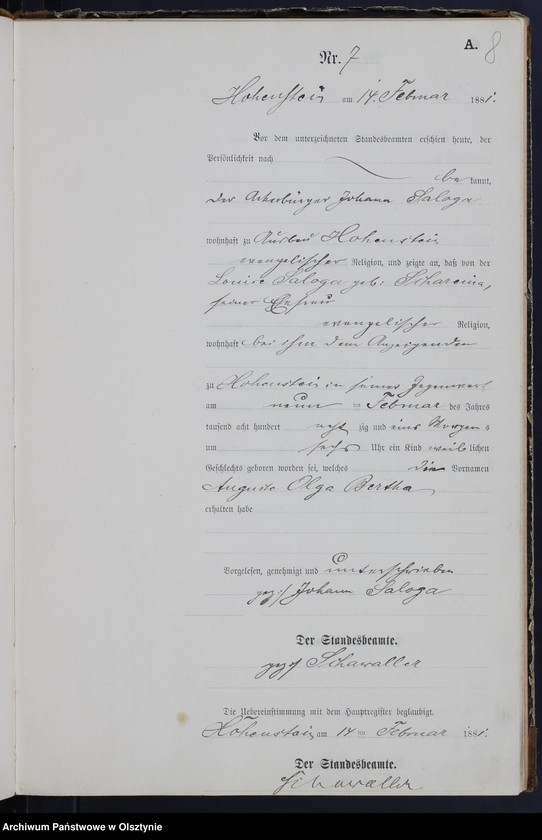 A. 8
Nr. 7
Hohenstein am 14. Februar 1881.
Vor dem unterzeichneten Standesbeamten erschien heute, der
Persönlichkeit nach
be kannt,
der Ackerbürger Johann Saloga
wohnhaft zu Ausbau Hohenstein
evangelischer Religion, und zeigte an, daß von der
Louise Saloga geb:
seiner Ehefrau
evangelischer Religion,
wohnhaft bei ihm dem Anzeigenden
zu Hohenstein in seiner Gegenwart
am neun ten Februar des Jahres
tausend acht hundert acht zig und eins Morgens
um sechs Uhr ein Kind weib lichen
Geschlechts geboren worden sei, welches die Vornamen
Auguste Olga Bertha
erhalten habe
Vorgelesen, genehmigt und unterschrieben
gez: Johann Saloga
Der Standesbeamte.
gez: Schawaller
Die Uebereinstimmung mit dem Hauptregister beglaubigt.
Hohenstein, am 14 ten Februar 1881.
Der Standesbeamte.
Schawaller
Archiwum Państwowe w Olsztynie